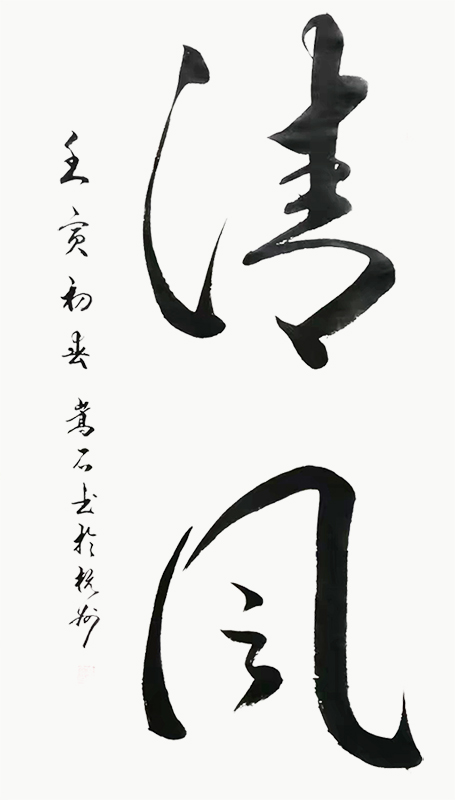 清风
壬寅初春嵩石书于杭州